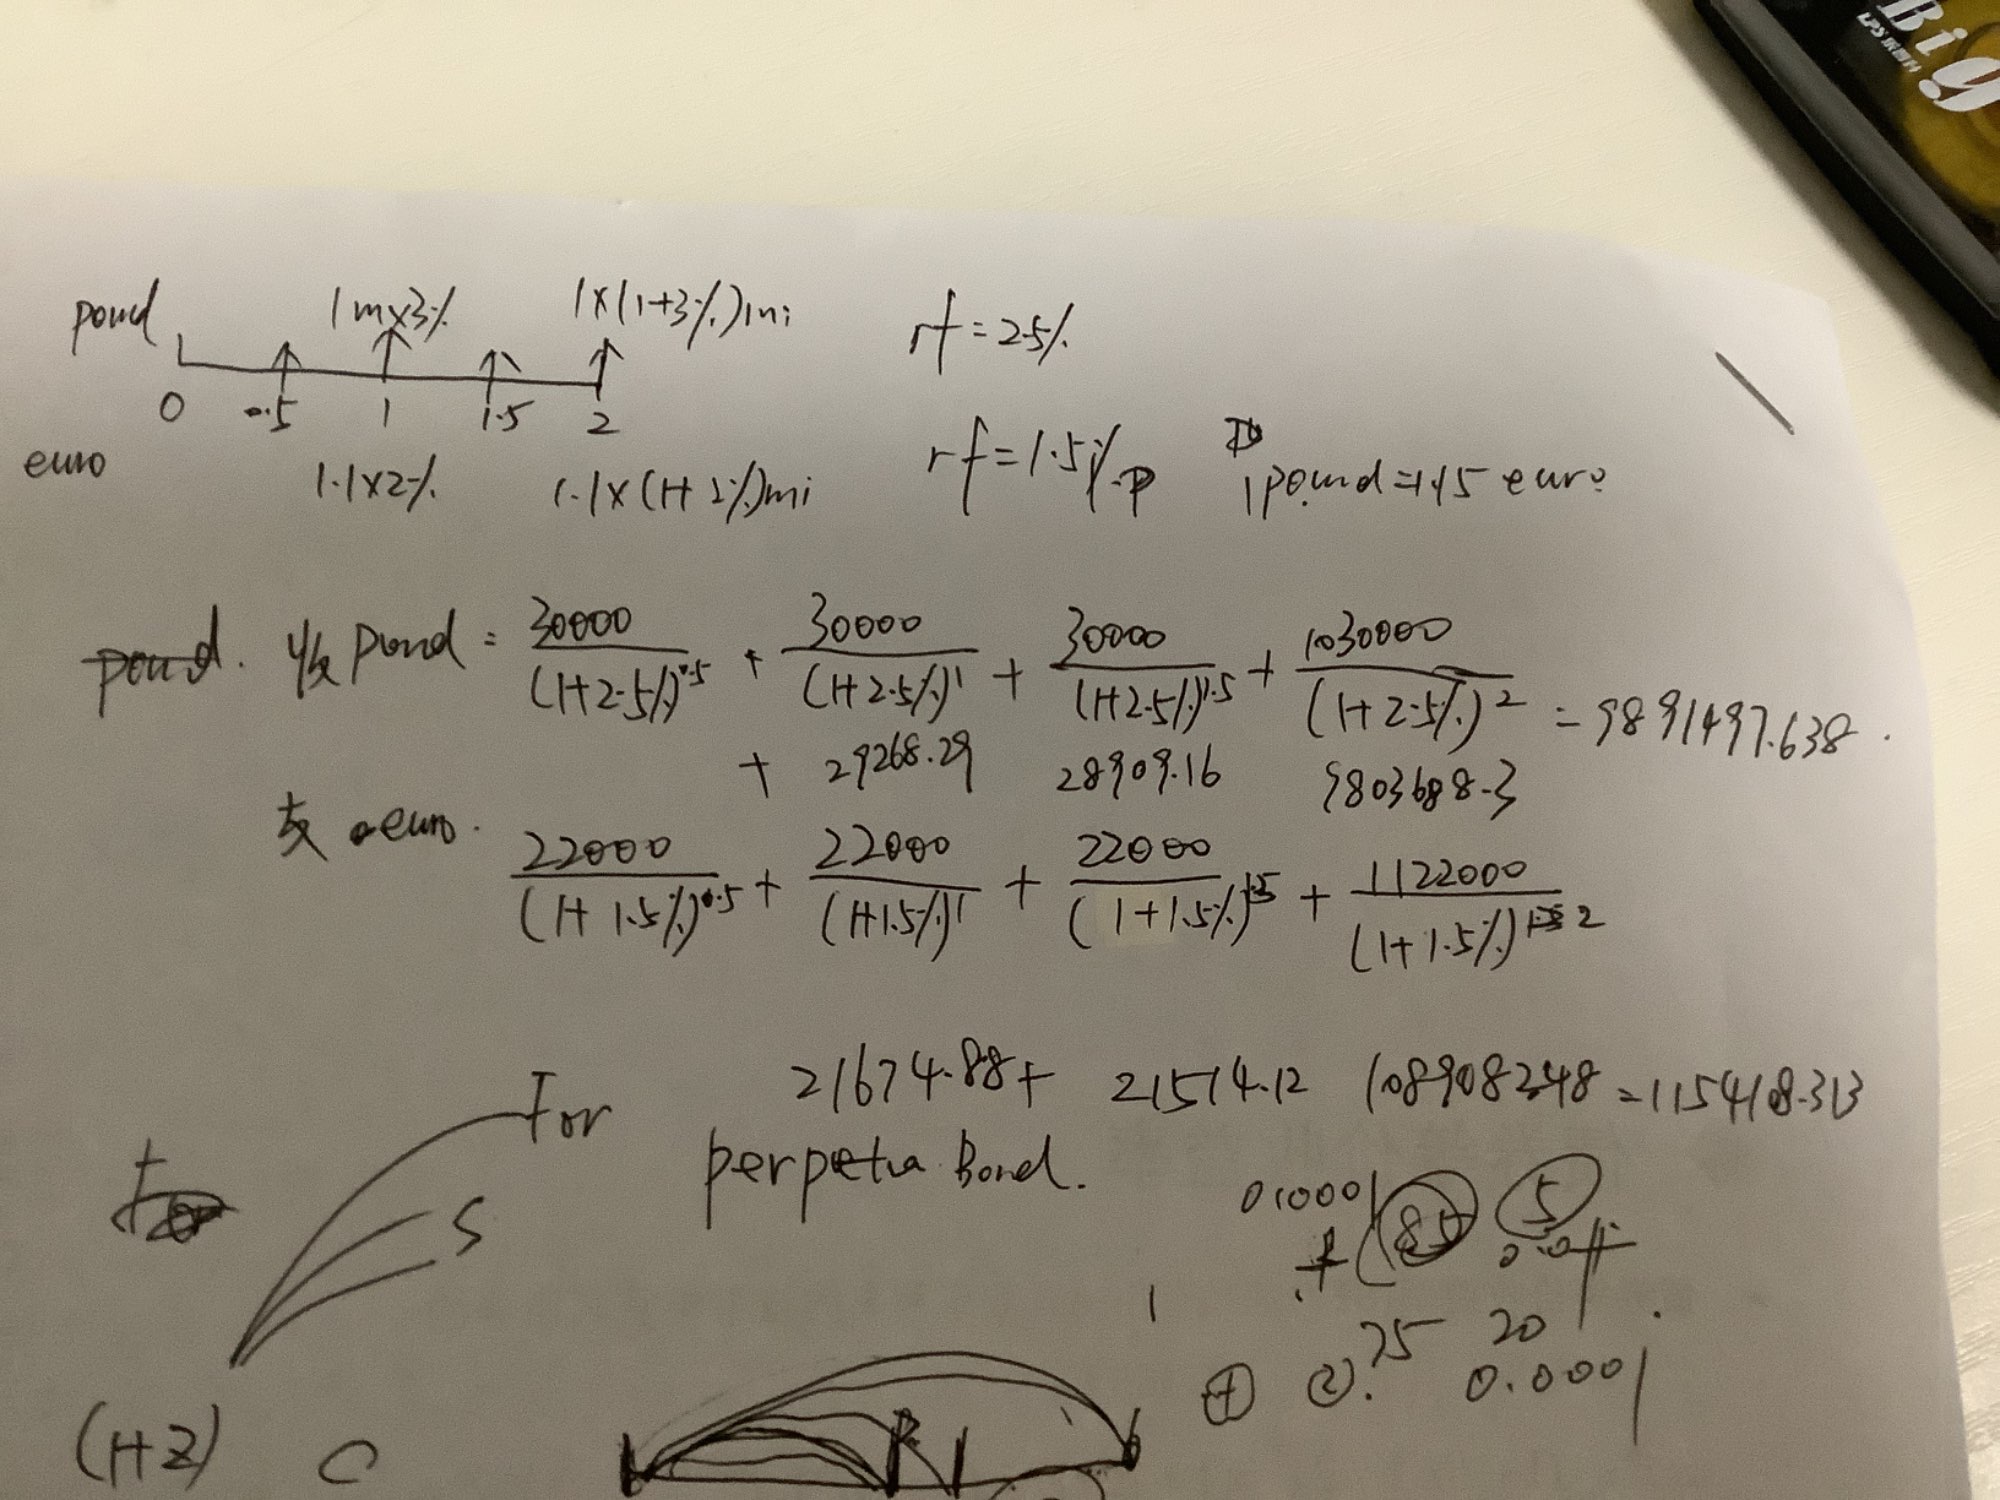 Big
LPS
pound 1m×3% 1×(1+3%)mi rf=2.5%
0 0.5 1 1.5 2
euro 1.1×2% 1.1×(1+2%)mi rf=1.5% 1pound=1.15 euro
pound. 收 pound = 30000/(1+2.5%)^0.5 + 30000/(1+2.5%)^1 + 30000/(1+2.5%)^1.5 + 1030000/(1+2.5%)^2 = 9891497.638.
+ 29268.29 28909.16 9803688.3
支 euro. 22000/(1+1.5%)^0.5 + 22000/(1+1.5%)^1 + 22000/(1+1.5%)^1.5 + 1122000/(1+1.5%)^2
21674.88+ 21514.12 108908248 =115418.313
For perpetua Bond.
S
0.0001 85 5
1
75 20
+ 2. 0.0001
(1+2) C